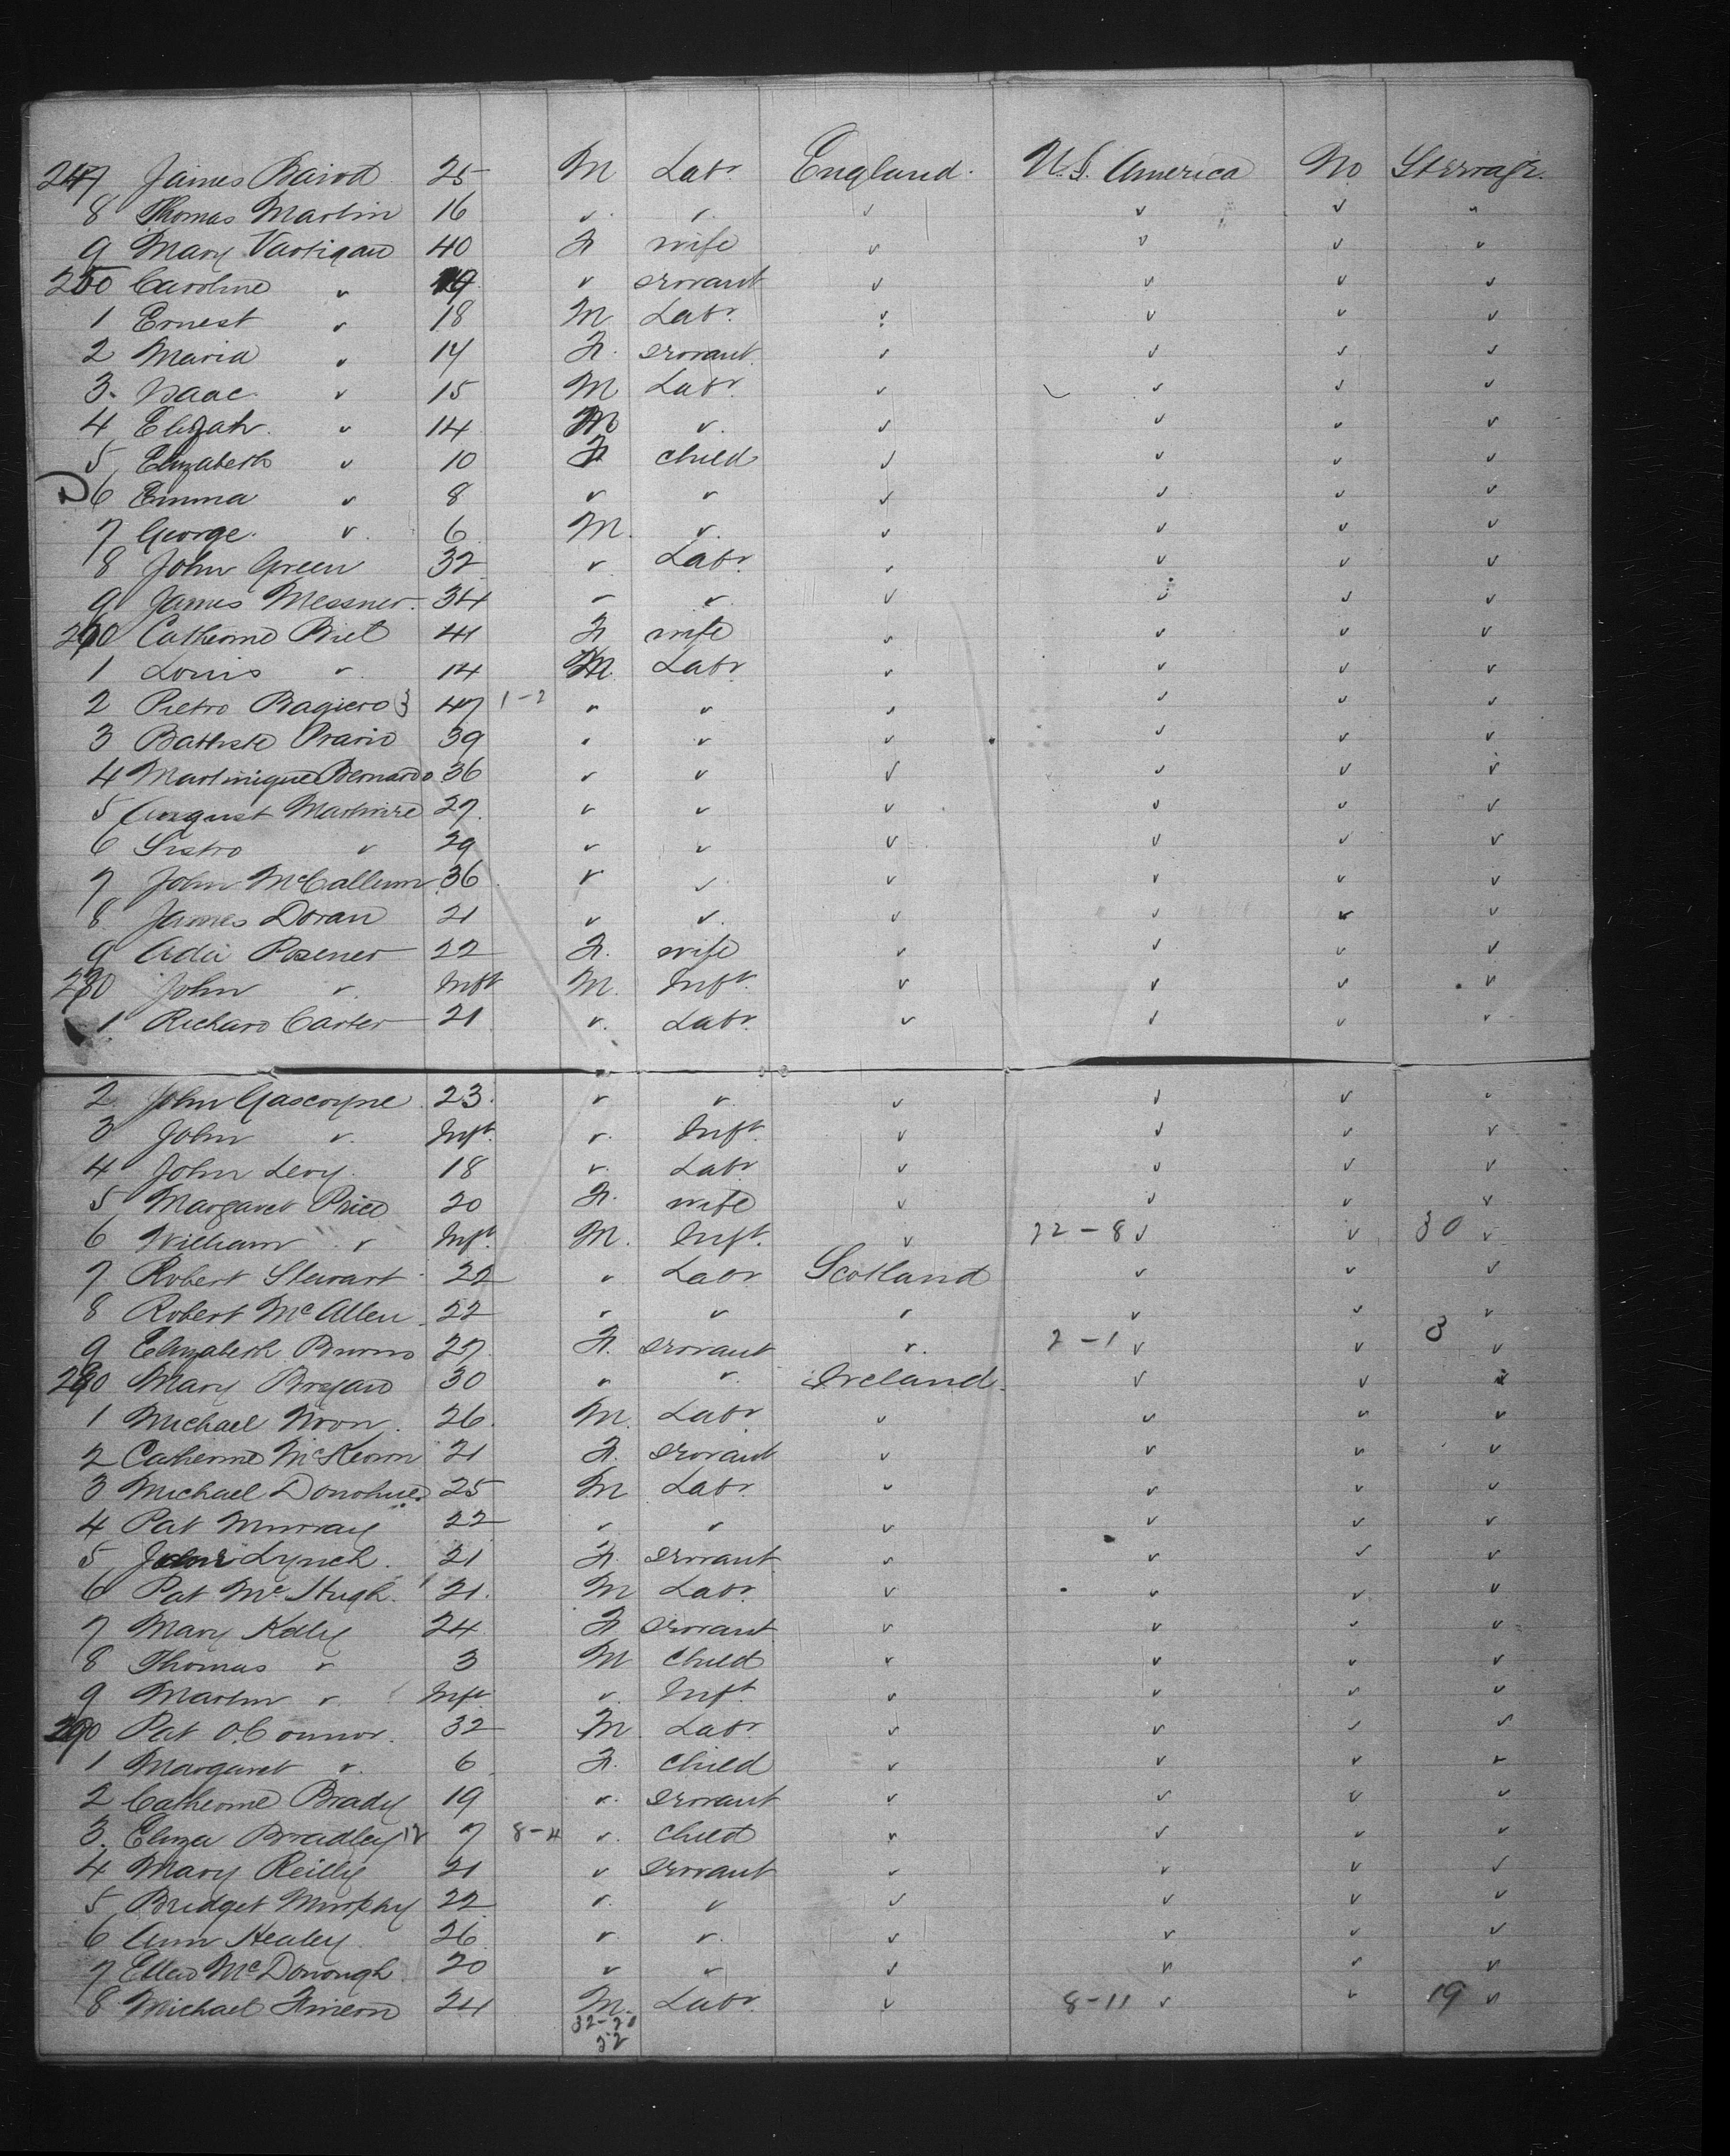 247 James Baird 25 M Labr England. U.S. America No Steerage.
8 Thomas Martin 16 " " " " " "
9 Mary Vartigan 40 F wife " " " "
250 Caroline " 19 " servant " " " "
1 Ernest " 18 M Labr " " " "
2 Maria " 14 F. servant " " " "
3. Isaac " 15 M Labr " " " "
4 Elijah " 14 M " " " " "
5 Elizabeth " 10 F child " " " "
6 Emma " 8 " " " " " "
7 George " 6 M " " " " "
8 John Green 32 " Labr " " " "
9 James Messner 34 " " " " " "
260 Catherine Briet 41 F wife " " " "
1 Louis " 14 M Labr " " " "
2 Pietro Bagiero 3 47 1-2 " " " " " "
3 Battiste Prario 39 " " " " " "
4 Martinique Bernardo 36 " " " " " "
5 August Martinire 27. " " " " " "
6 Sistro " 29 " " " " " "
7 John McCallum 36 " " " " " "
8 James Doran 21 " " " " " "
9 Ada Posener 22 F. wife " " " "
270 John " Inft M. Inft. " " " "
1 Richard Carter 21 " Labr " " " "
2 John Gascoyne 23. " " " " " "
3 John " Inft. " Inft. " " " "
4 John Levy 18 " Labr " " " "
5 Margaret Price 20 F. wife " " " "
6 William " Inft. M. Inft. " 22-8 " " 30 "
7 Robert Stewart 22 " Labr Scotland " " "
8 Robert McAllen 22 " " " " " "
9 Elizabeth Burns 27. F. servant " 2-1 " " 3 "
280 Mary Brogan 30 " " Ireland. " " "
1 Michael Noon 26. M. Labr " " " "
2 Catherine McKeown 21 F. servant " " " "
3 Michael Donohue 25 M Labr " " " "
4 Pat Murray 22 " " " " " "
5 Lynch. 21 F. servant " " " "
6 Pat McHugh 21. M Labr " " " "
7 Mary Kelly 24 F servant " " " "
8 Thomas " 3 M child " " " "
9 Martin " Inft " Inft. " " " "
290 Pat O'Connor. 32 M Labr " " " "
1 Margaret " 6 F. child " " " "
2 Catherine Brady 19 " servant " " " "
3. Eliza Bradley 12 7 8-4 " child " " " "
4 Mary Reilly 21 " servant " " " "
5 Bridget Murphy 22 " " " " " "
6 Ann Healey 26 " " " " " "
7 Ellen McDonough 20 " " " " " "
8 Michael Fineron 24 M. Labr " 8-11 " " 19 "
32-20
52